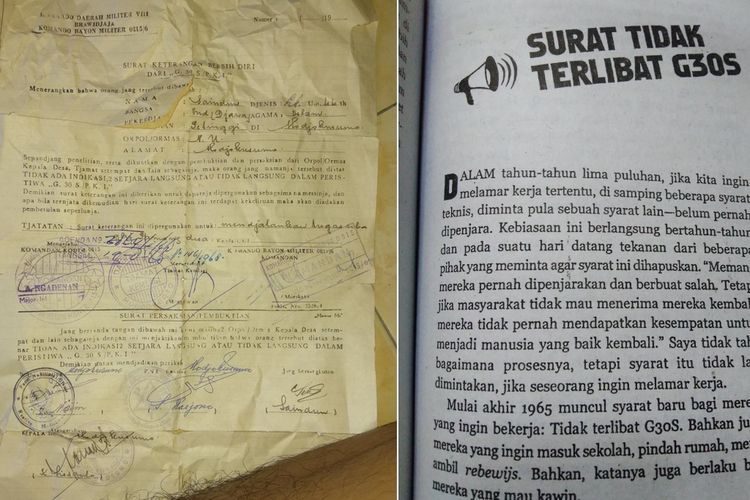 KOMANDO DAERAH MILITER VIII
BRAWIDJAJA
KOMANDO RAYON MILITER 0815/6
Nomor :
SURAT KETERANGAN BERSIH DIRI
DARI „G. 30 S / P. K. I."
Menerangkan bahwa orang jang tersebut dibawah
NAMA : Samdun DJENIS Lk. Umur
BANGSA : Ind/Djawa AGAMA : Islam
PEKERDJAAN : DI Modjokusumo
ORPOL/ORMAS : N. U.
ALAMAT : Modjokusumo
Sepandjang penelitian, serta dikuatkan dengan pembuktian dan persaksian dari Orpol/Ormas
Kepala Desa, Tjamat setempat dan lain sebagainja, maka orang jang namanja tersebut diatas
TIDAK ADA INDIKASI2 SETJARA LANGSUNG ATAU TIDAK LANGSUNG DALAM PERIS-
TIWA „G. 30 S / P. K. I."
Demikian surat keterangan ini diberikan untuk dapatnja dipergunakan sebagaimana mestinja, dan
apa bila ternjata dikemudian hari surat keterangan ini terdapat kekeliruan maka akan diadakan
pembetulan seperlunja.
TJATATAN : Surat keterangan ini dipergunakan untuk mendjalankan tugas
desa
Mengetahui
KOMANDAN KODIM
KOMANDO RAYON MILITER
KOMANDAN
A. NGADENAN
SURAT PERSAKSIAN/PEMBUKTIAN
Jang bertanda tangan dibawah ini kami wakil2 Orpol/Ormas Kepala Desa setem-
pat dan lain sebagainja ini menjaksikan/membuktikan bahwa orang tersebut diatas be-
nar TIDAK ADA INDIKASI2 SETJARA LANGSUNG ATAU TIDAK LANGSUNG DALAM
PERISTIWA „G. 30 S / P. K. I."
Demikian jang mendjadikan periksa
Modjokusumo
Jang berkepentingan
(Samdun)
KEPALA
SURAT TIDAK
TERLIBAT G30S
DALAM tahun-tahun lima puluhan, jika kita ingin
melamar kerja tertentu, di samping beberapa syarat
teknis, diminta pula sebuah syarat lain—belum pernah
dipenjara. Kebiasaan ini berlangsung bertahun-tahun
dan pada suatu hari datang tekanan dari beberapa
pihak yang meminta agar syarat ini dihapuskan. “Meman
mereka pernah dipenjarakan dan berbuat salah, Tetap
jika masyarakat tidak mau menerima mereka kembal
mereka tidak pernah mendapatkan kesempatan untu
menjadi manusia yang baik kembali.” Saya tidak tah
bagaimana prosesnya, tetapi syarat itu tidak la
dimintakan, jika seseorang ingin melamar kerja.
Mulai akhir 1965 muncul syarat baru bagi mere
yang ingin bekerja: Tidak terlibat G30S. Bahkan ju
mereka yang ingin masuk sekolah, pindah rumah, me
ambil rebewijs. Bahkan, katanya juga berlaku b
mereka yang mau kawin.